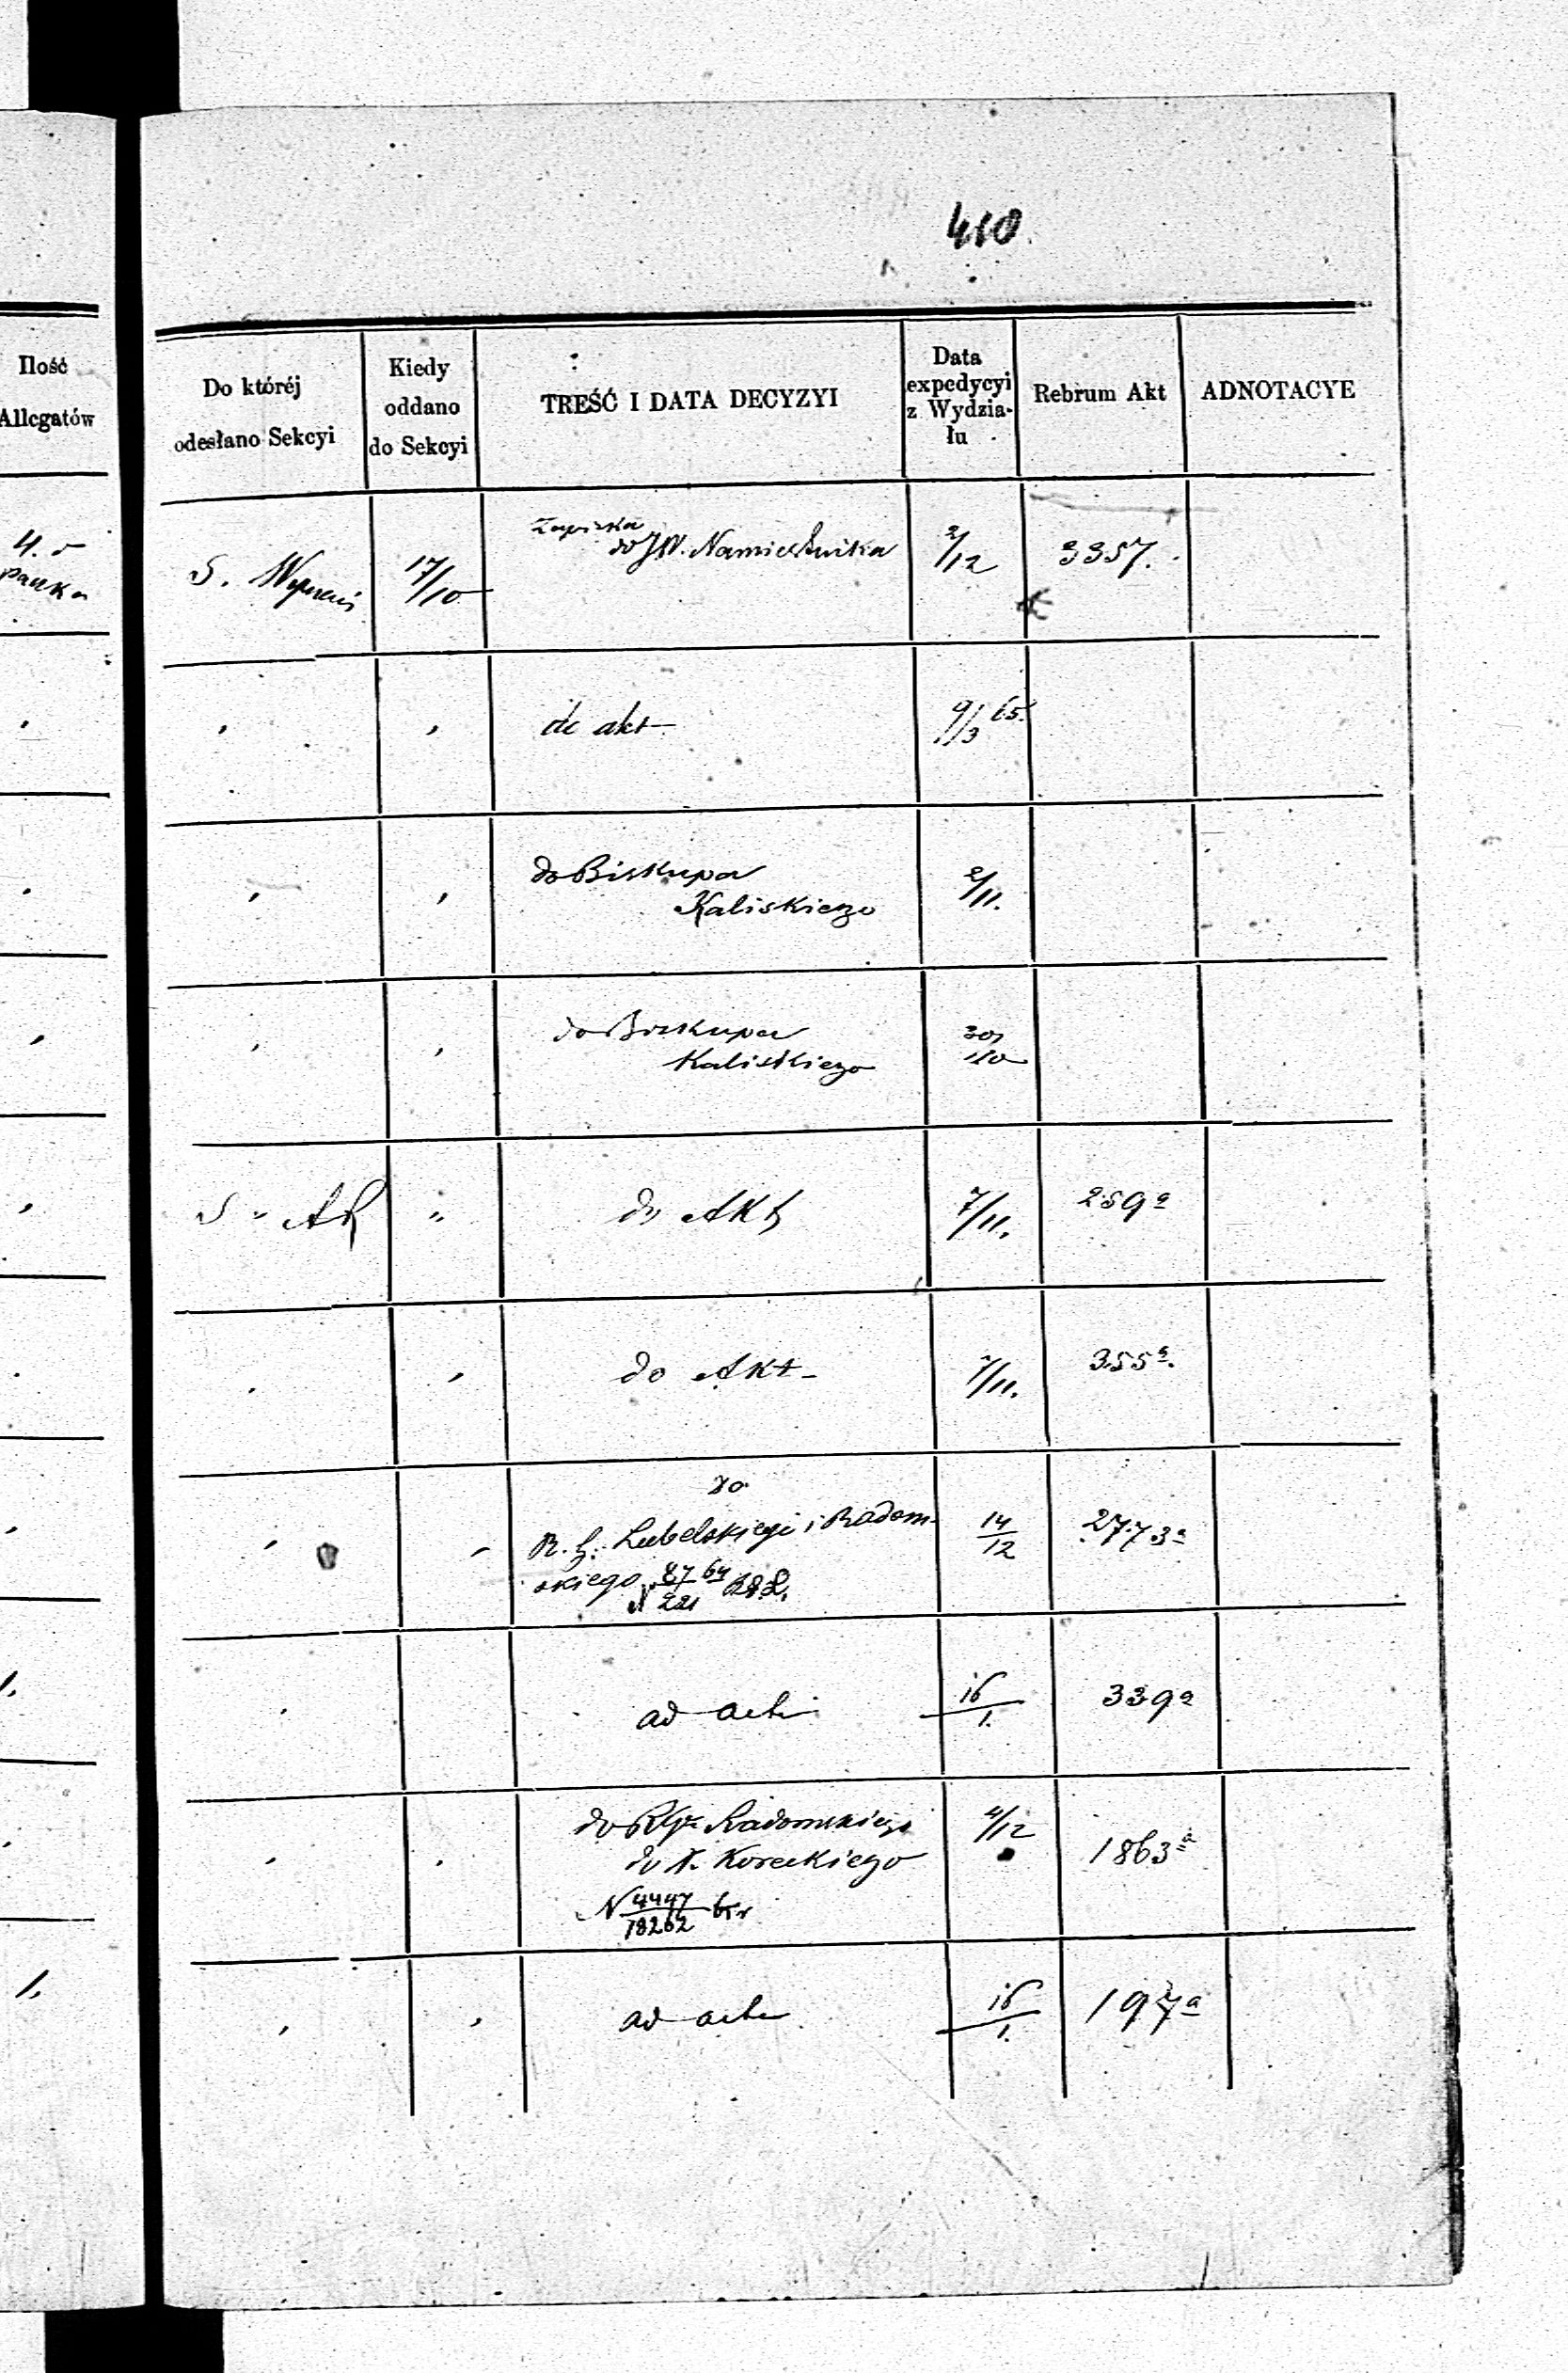 410.
Ilość
Allegatów
Do któréj
odesłano Sekcyi
Kiedy
oddano
do Sekcyi
TREŚĆ I DATA DECYZYI
Data
expedycyi
z Wydzia-
łu
Rebrum Akt
ADNOTACYE
4. S. 17/10 Zapiska
do JW. Namiestnika 2/12 3357.
do akt 9/3 65.
do Biskupa
Kaliskiego 2/11.
do Biskupa
Kaliskiego 30/10
S. " do Akt 7/11. 259a
do Akt 7/11. 355a.
do
R. G. Lubelskiego i Radom-
skiego N 87/221 64 14/12 2773a
1. ad acta 16/1. 339a
do Radomskiego
do N. Koreckiego
N 4447/18262 4/12 1863a
1. ad acta 16/1. 197a